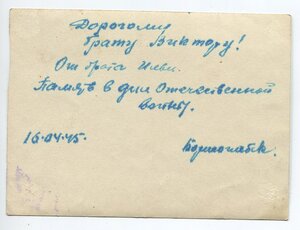 Дорогому
брату Виктору!
От брата Ильи.
Память в дни Отечественной
войны.
16.04.45.